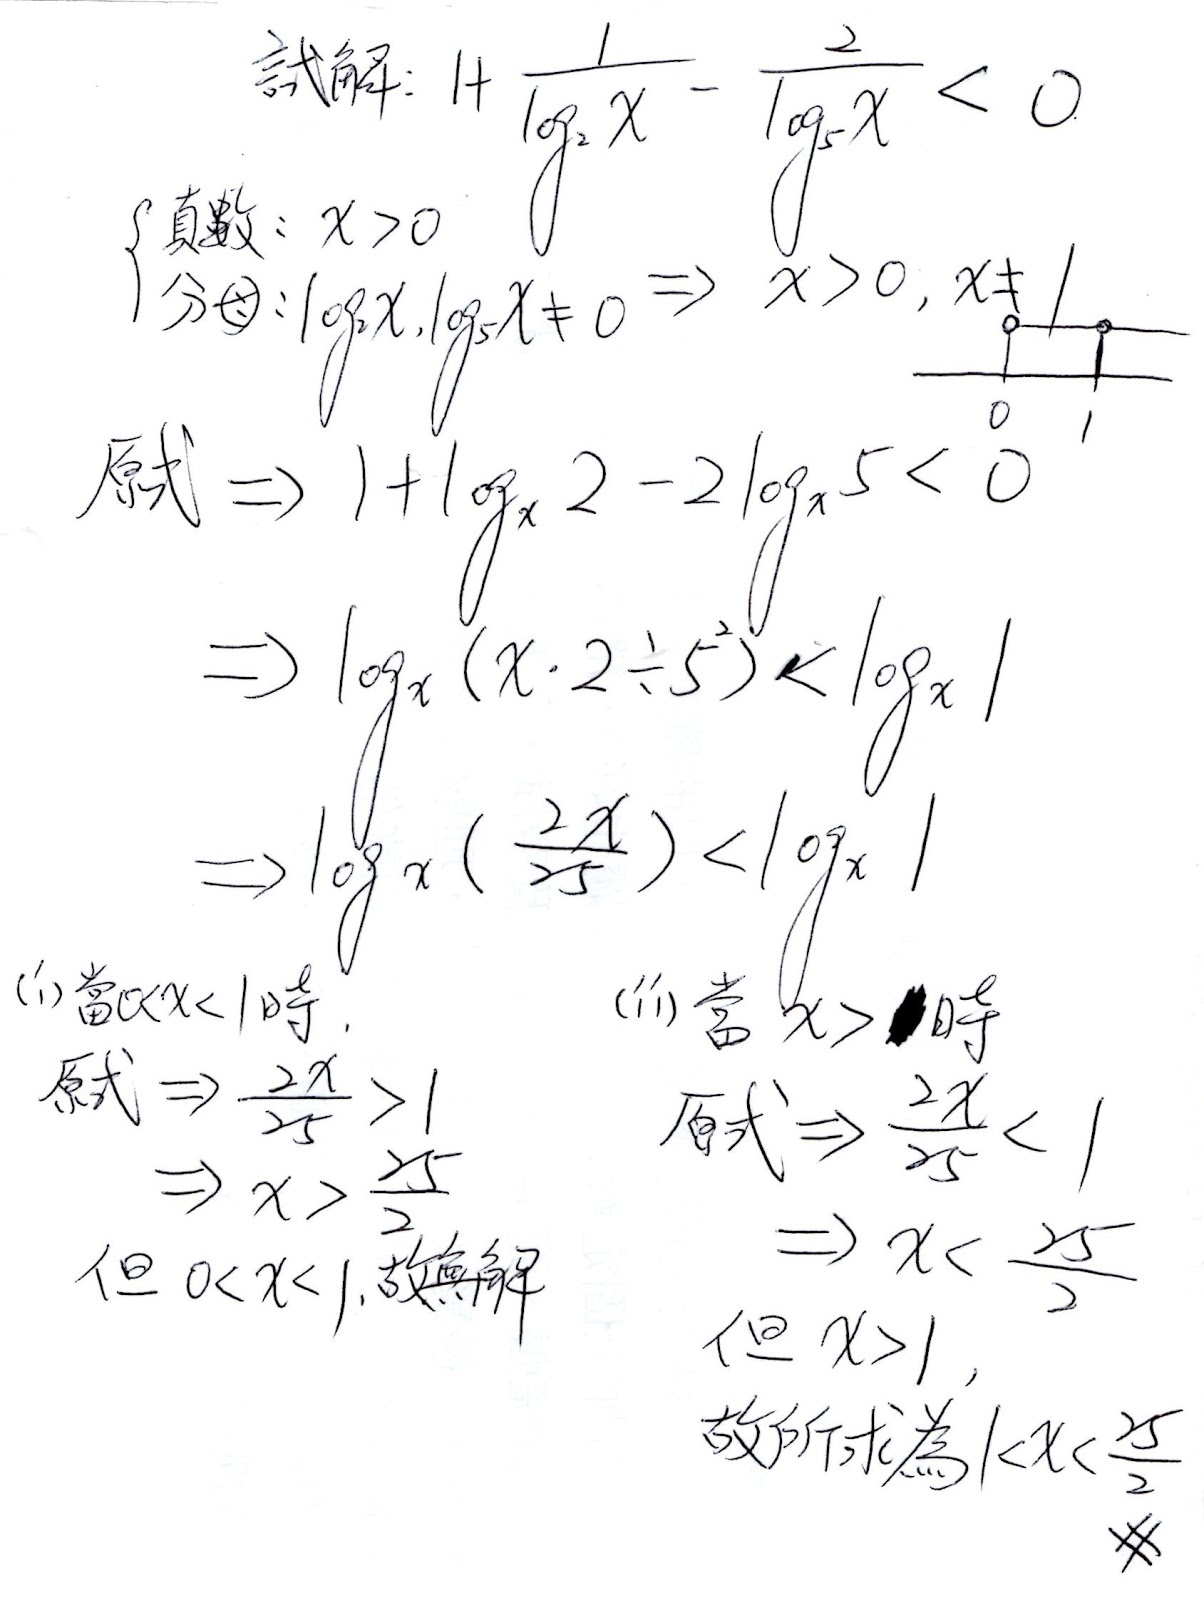 試解: 1+ 1/log₂x - 2/log₅x < 0
真數: x>0
分母: log₂x, log₅x ≠ 0 ⇒ x>0, x≠1
0 1
原式 ⇒ 1+logₓ2-2logₓ5<0
⇒ logₓ(x·2÷5²)<logₓ1
⇒ logₓ(2x/25)<logₓ1
(i) 當0<x<1時,
原式 ⇒ 2x/25 >1
⇒ x> 25/2
但 0<x<1, 故無解
(ii) 當 x> 時
原式 ⇒ 2x/25 < 1
⇒ x< 25/2
但 x>1,
故所求為 1<x< 25/2